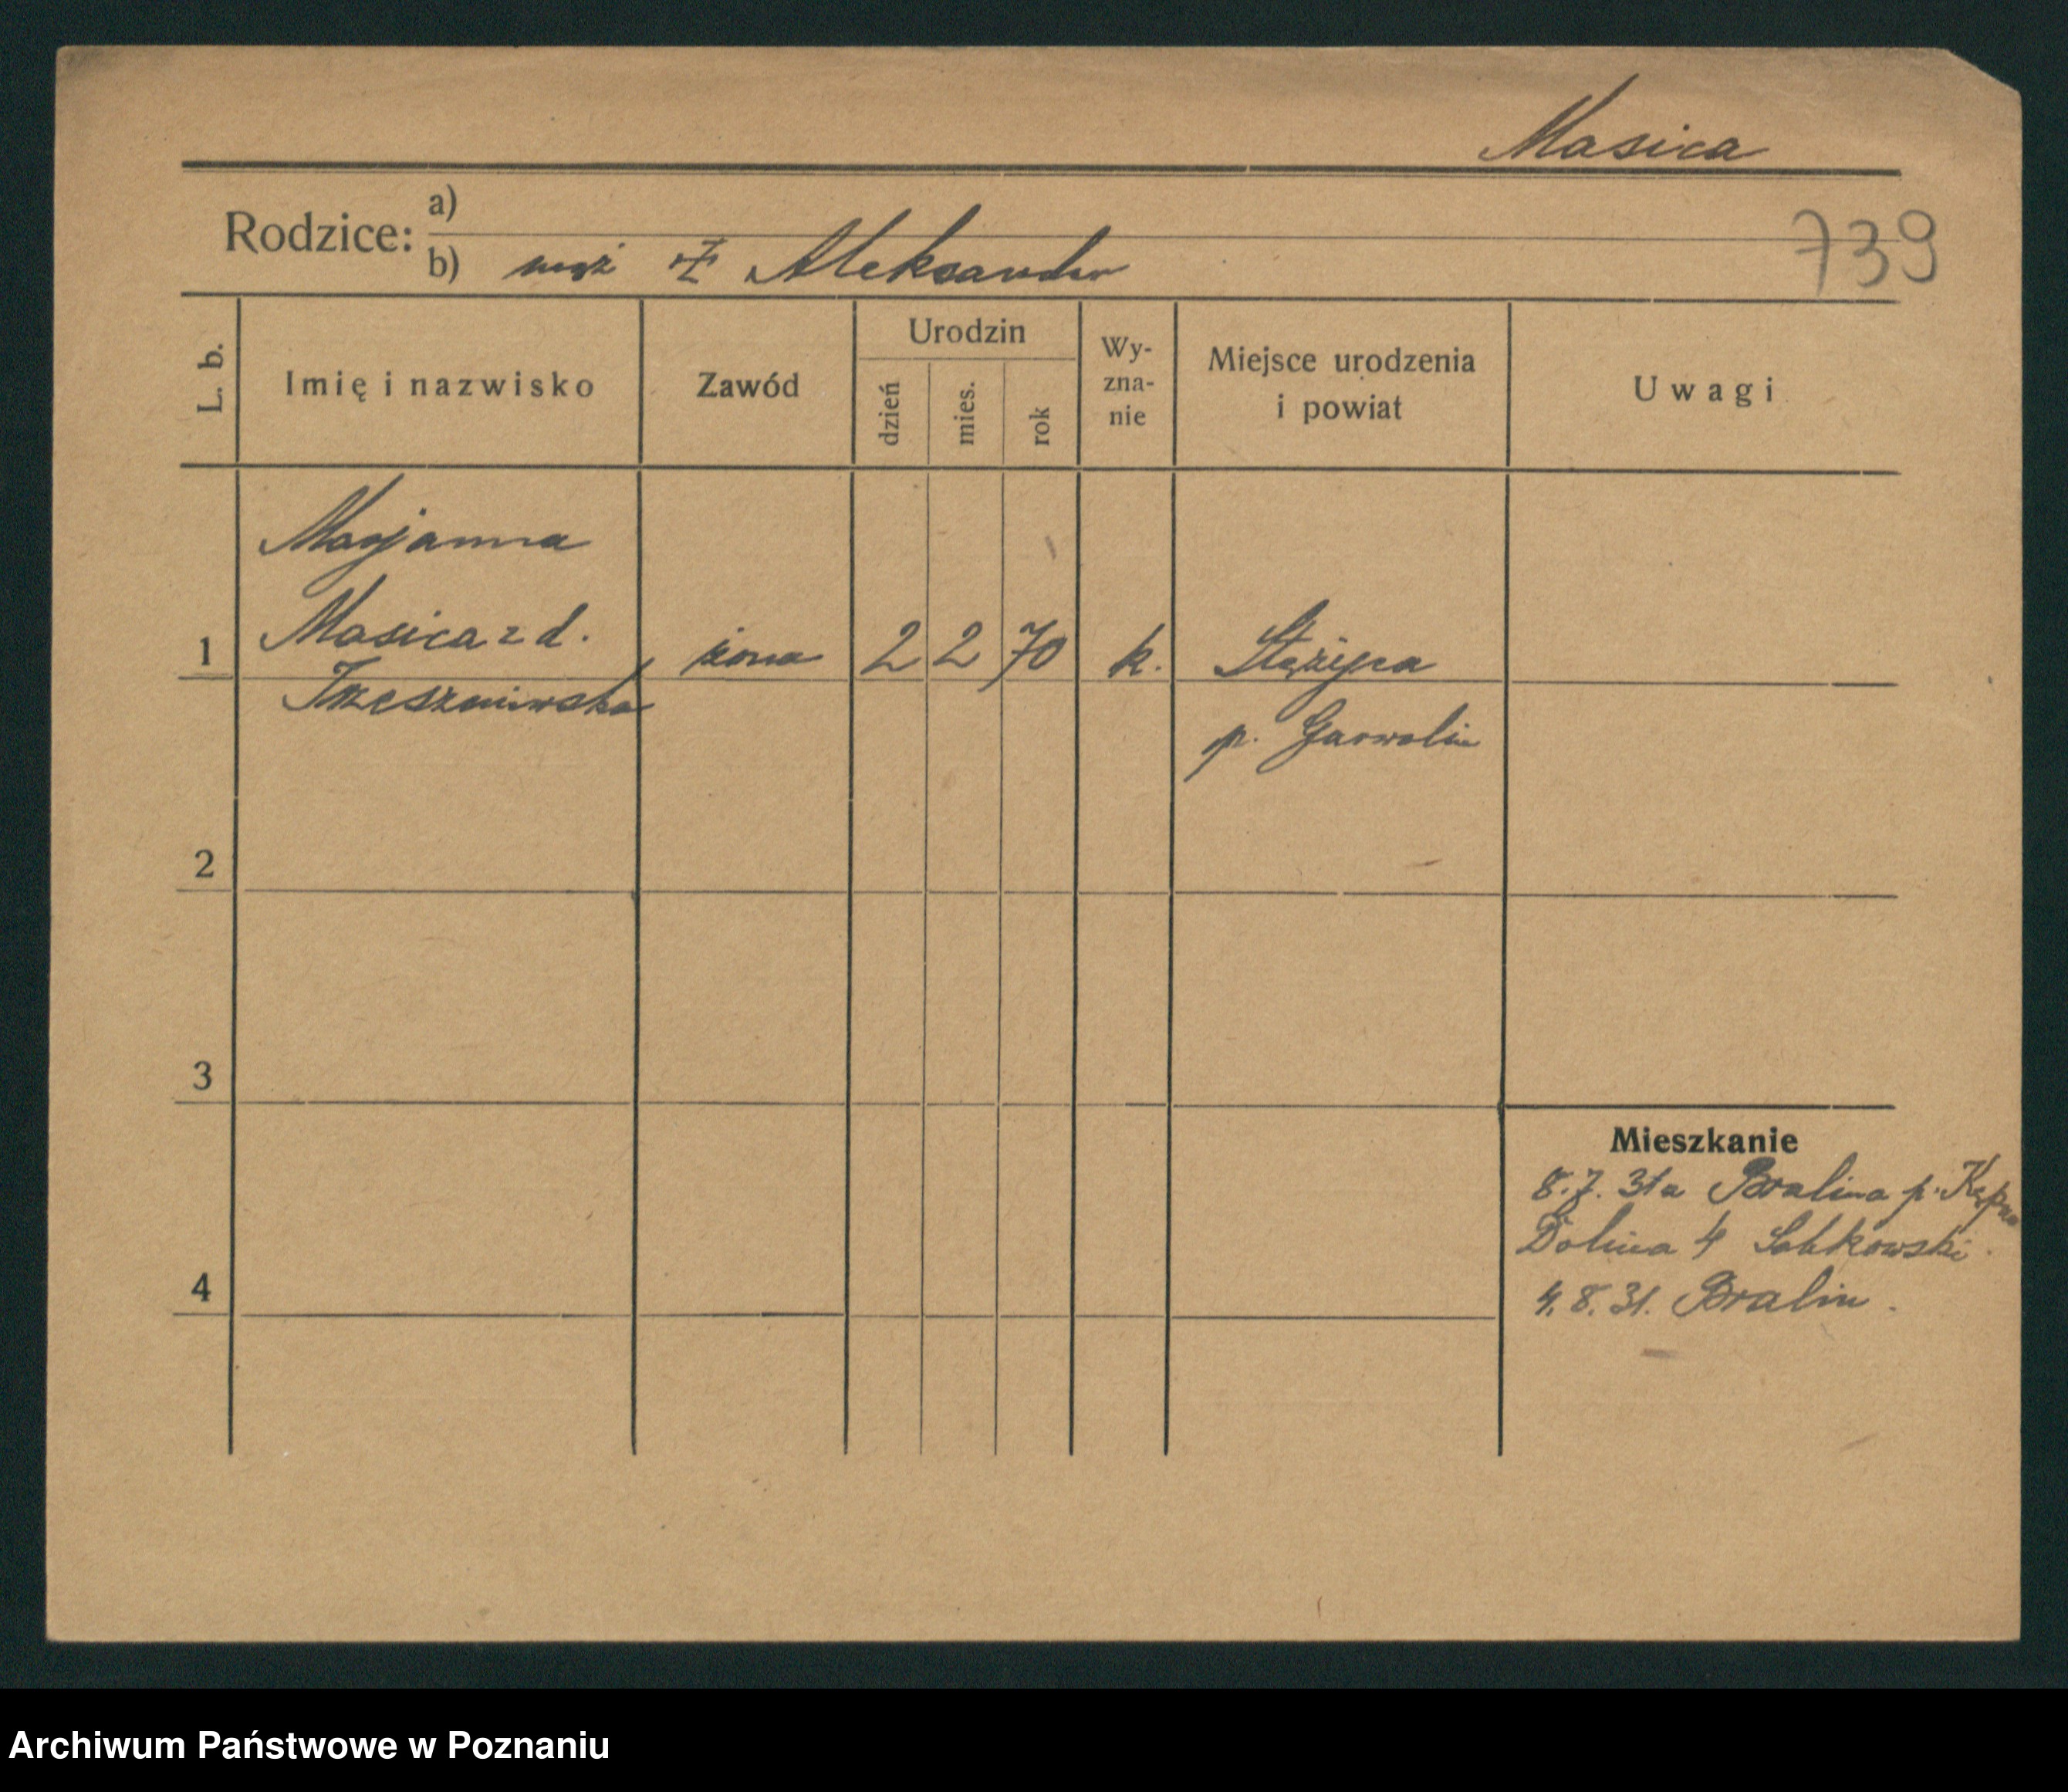 Masica
Rodzice: a)
739
b) mąż ✝ Aleksander
L. b.
Imię i nazwisko
Zawód
Urodzin
dzień
mies.
rok
Wy-
zna-
nie
Miejsce urodzenia
i powiat
Uwagi
Marjanna
1 Masica z d. żona 2 2 70 k. Stężyca
Trzeszniewska
p. Garwolin
2
3
Mieszkanie
8.7.31 a Bralina p. Kępno
Dolina 4 Sobkowski
4
4.8.31. Bralin.
Archiwum Państwowe w Poznaniu